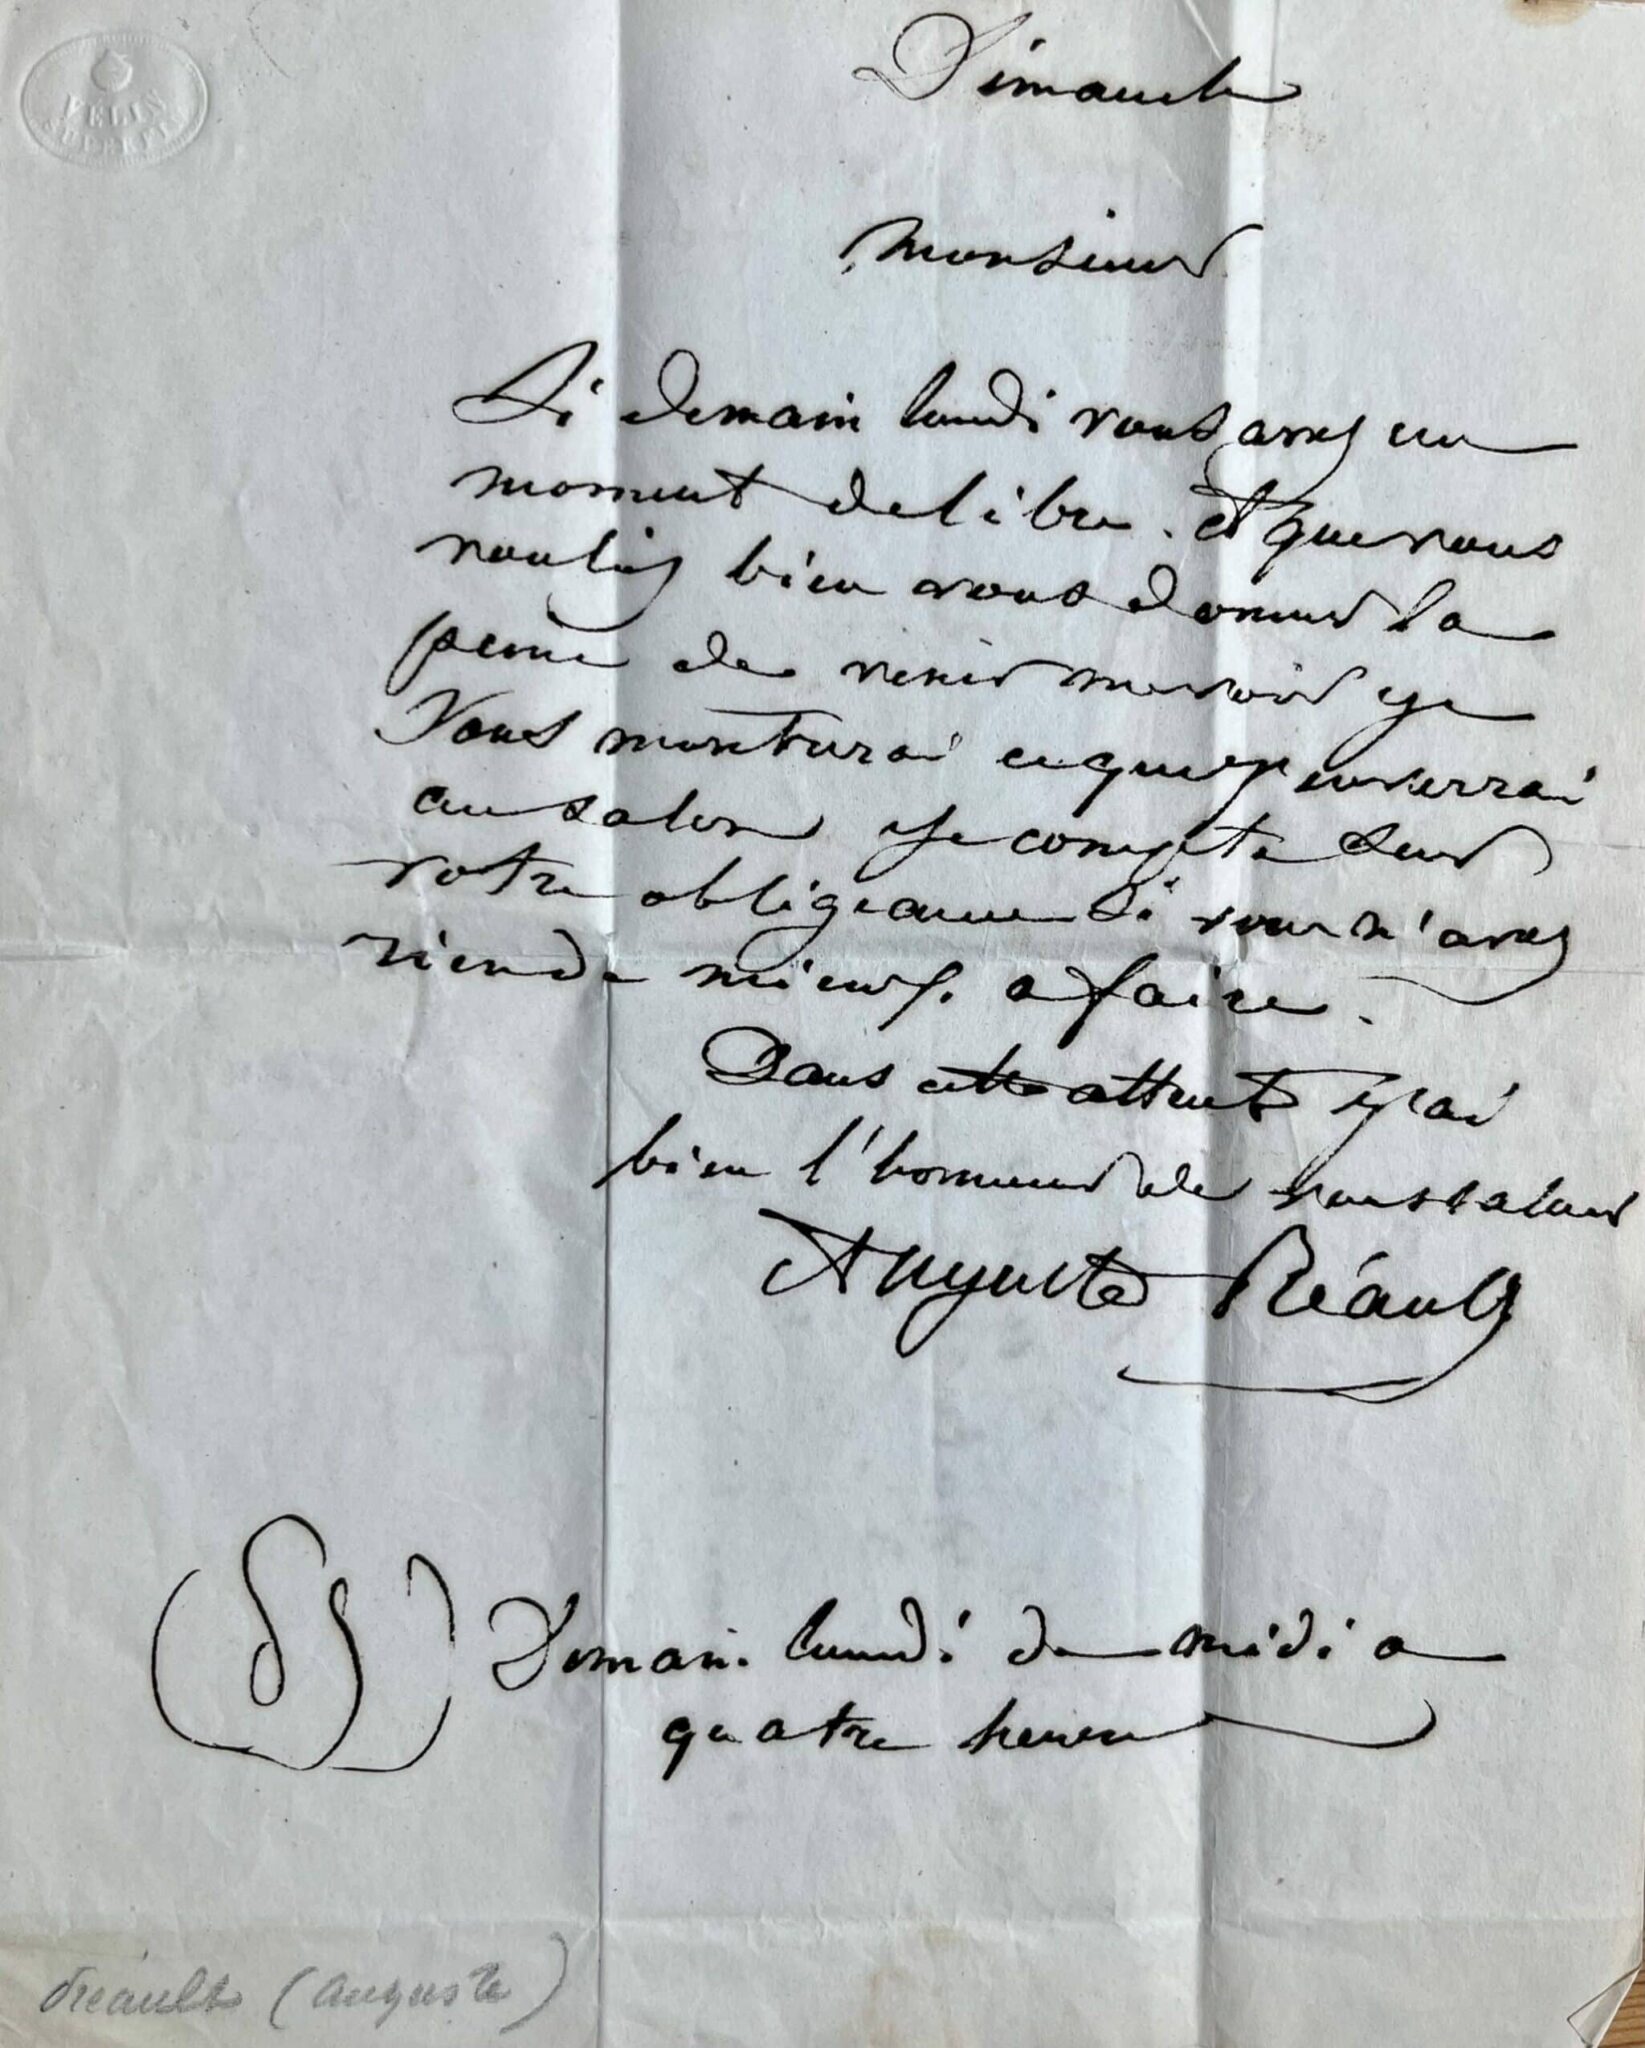 VELIN
SUPERFIN
Dimanche
Monsieur
Si demain lundi vous avez un
moment de libre. et que vous
vouliez bien vous donner la
peine de venir me voir je
Vous montrerai ce que j'enverrai
au salon je compte sur
votre obligeance si vous n'avez
rien de mieux. a faire.
Dans cette attente j'ai
bien l'honneur de vous saluer
Auguste Réault
Demain. lundi de midi a
quatre heures
(Auguste)